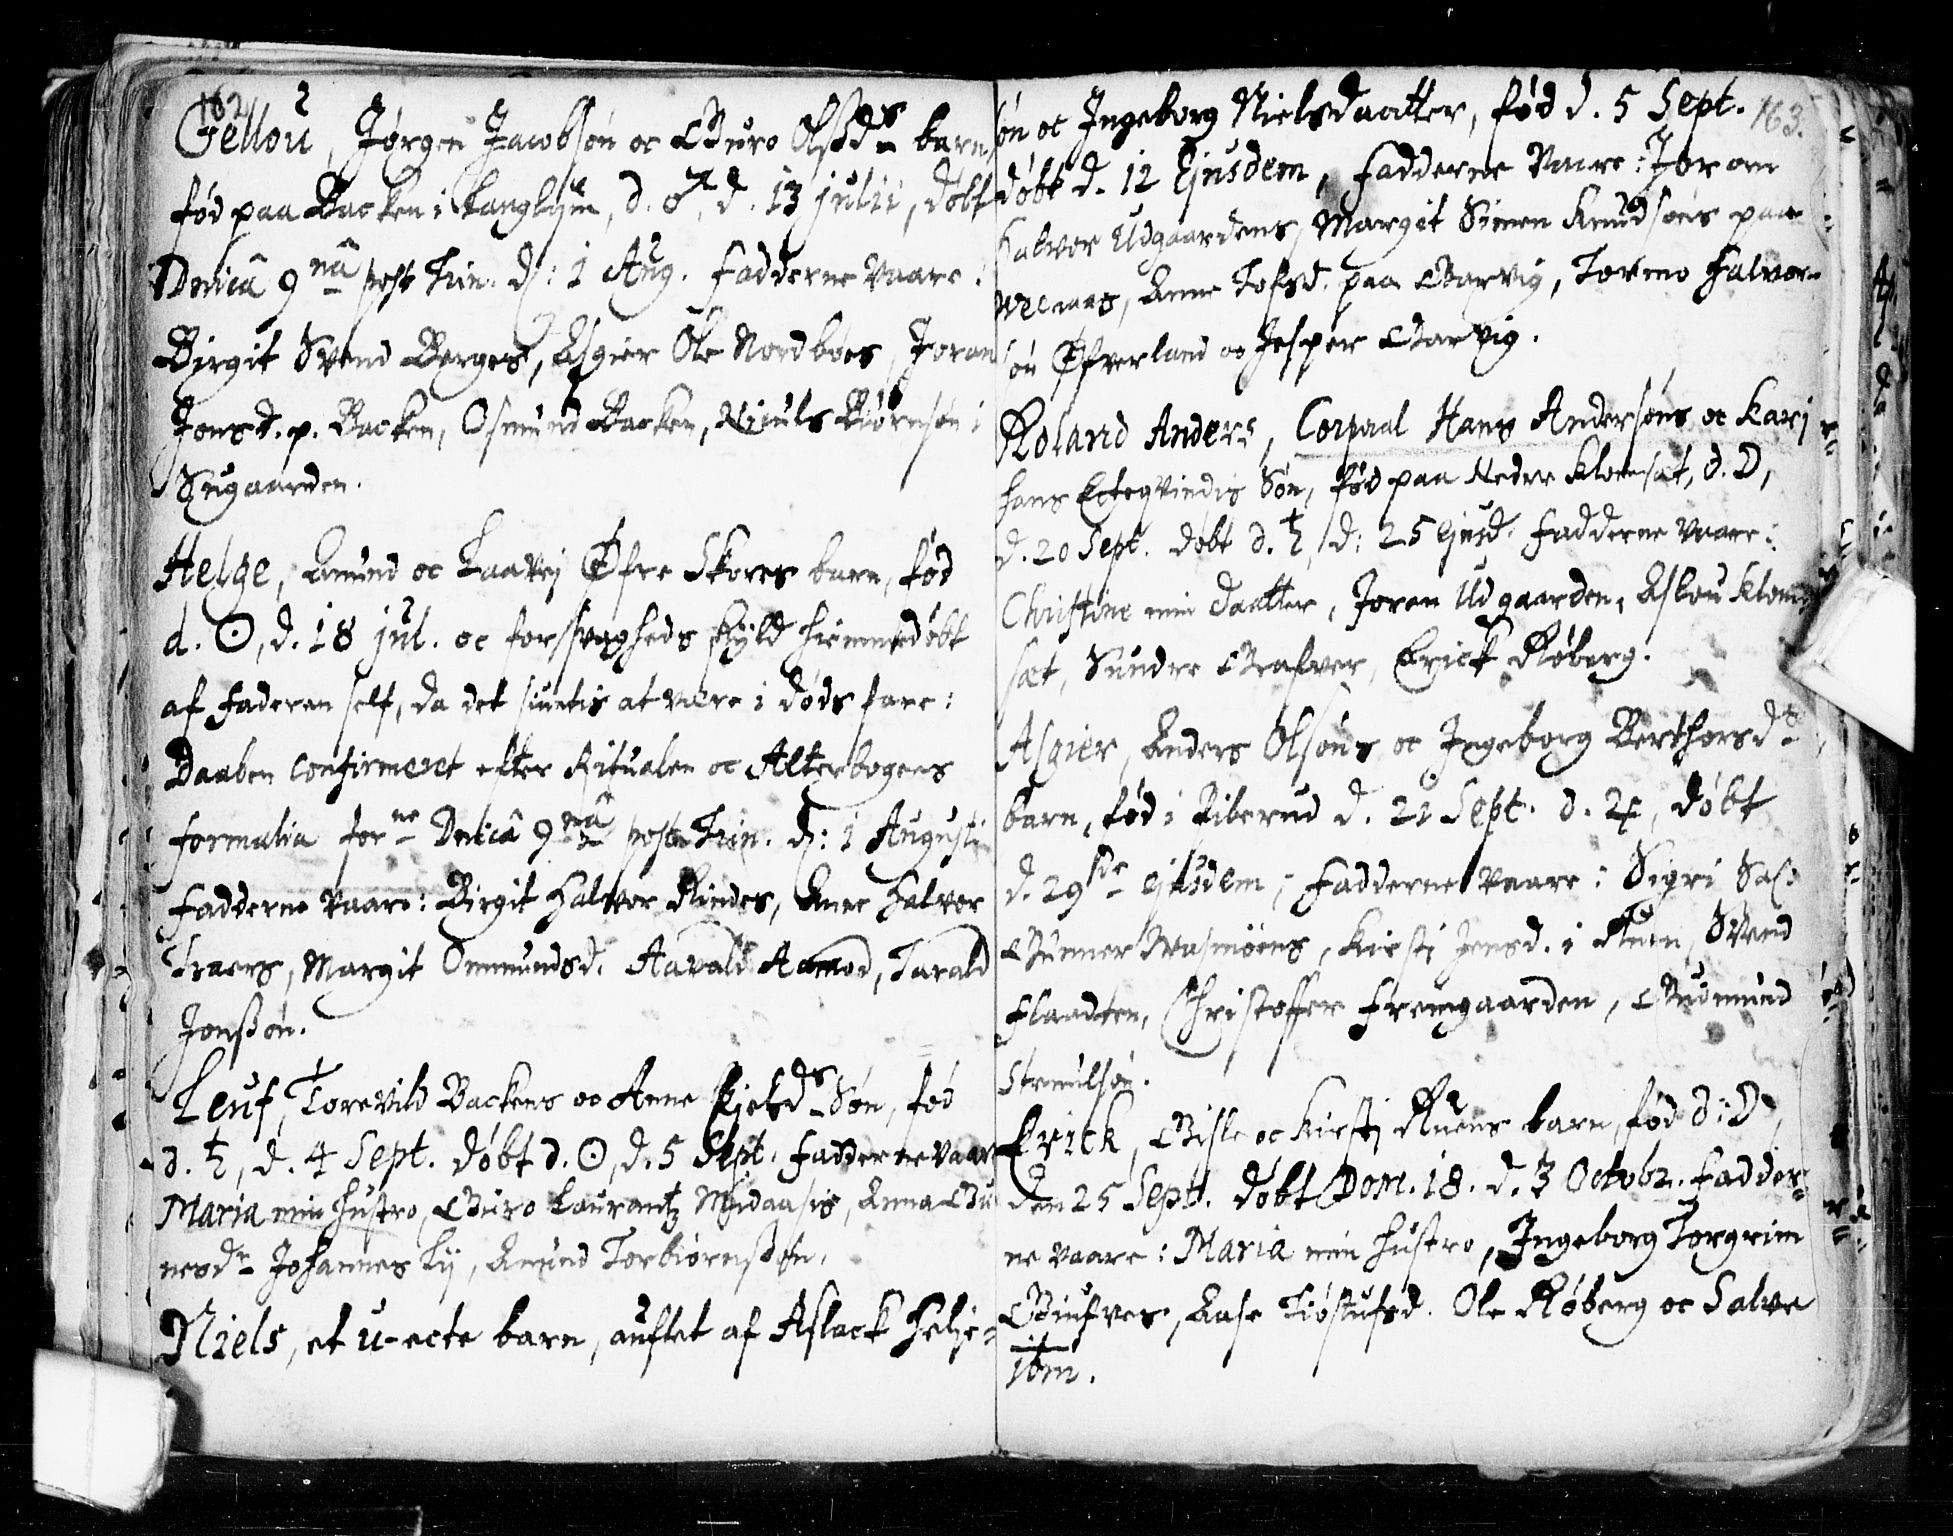 162
Gellou, Jørgen Jacobsøn oc Guro Olsds barn
fød paa Backen i d. ♂, d. 13 julii, døbt
Dnicâ 9nâ post Trin. d: 1 Aug. Fadderne vaare:
Birgit Svend Berges, Asgier Ole Nordboes, Joran
Jonsd. p. Backen, Osmund Backen, Niculs Biørnsøn i
Sugaarden.
Helge, Amund oc Laavej Øfre Skores barn, fød
d. ☉, d. 18 jul. oc for svagheds skyld hiemmedøbt
af Faderen self, da det siuntis at være i døds fare:
Daaben confirmeret efter Ritualen oc Alterbogens
formalia forne Dnicâ 9nâ post Trin. d: 1 Augusti
Fadderne vaare: Birgit Halvor Rindes, Anne Halvor
Traers, Margit Ommundsd. Aavald Aamod, Tarald
Jonssøn.
Leuf, Torevild Backens oc Anne Kjelsds Søn, fød
d. ♄, d. 4 Sept. døbt d. ☉, d. 5 Sept. Fadderne vaar
Maria min Hustro, Guro Laurantz Midaasis, Anna Gu
nesdr Johannes Lij, Amund Torbiørnssøn.
Niels, et u-ecte barn, auflet af Aslack Helje-
163.
søn oc Ingeborg Nielsdaatter, fød d. 5 Sept.
døbt d. 12 Ejusdem, Fadderne vaare: Joran
Halvor Udgaardens, Margit Simen Knudsøns paa
Anne Tofsd. paa Garvig, Tormo Halvor-
søn Øfverland oc Jesper Garvig.
Roland Anders, Corpral Hans Andersøns oc Karj
hans Ectequindis Søn, fød paa Nedre Klomsæt, d. D,
d. 20 Sept. døbt d. ♄, d: 25 Ejusd. Fadderne vaare:
Christine min daatter, Joran Udgaarden, Aslou Klom
sæt, Sundre Grafver, Erick Røberg.
Asgier, Anders Olsøns oc Ingeborg Berthorsds
barn, fød i Riberud d. 21 Sept. d. ♃, døbt
d. 29de ejusdem, Fadderne vaare: Sigri Sal:
Gunner Wasmøens, Kirstj Jensd. i Ruen, Svend
Flaadten, Christoffer Fremgaarden, Gudmund

Erick, Gisle oc Kirstj Ruens barn, fød d: D,
den 25 Sept. døbt Dom. 18. d. 3 Octobr. Fadder-
ne vaare: Maria min Hustro, Ingeborg Torgrim
Giufves, Aase Tiøstufsd. Ole Røberg oc Salve
ibm.